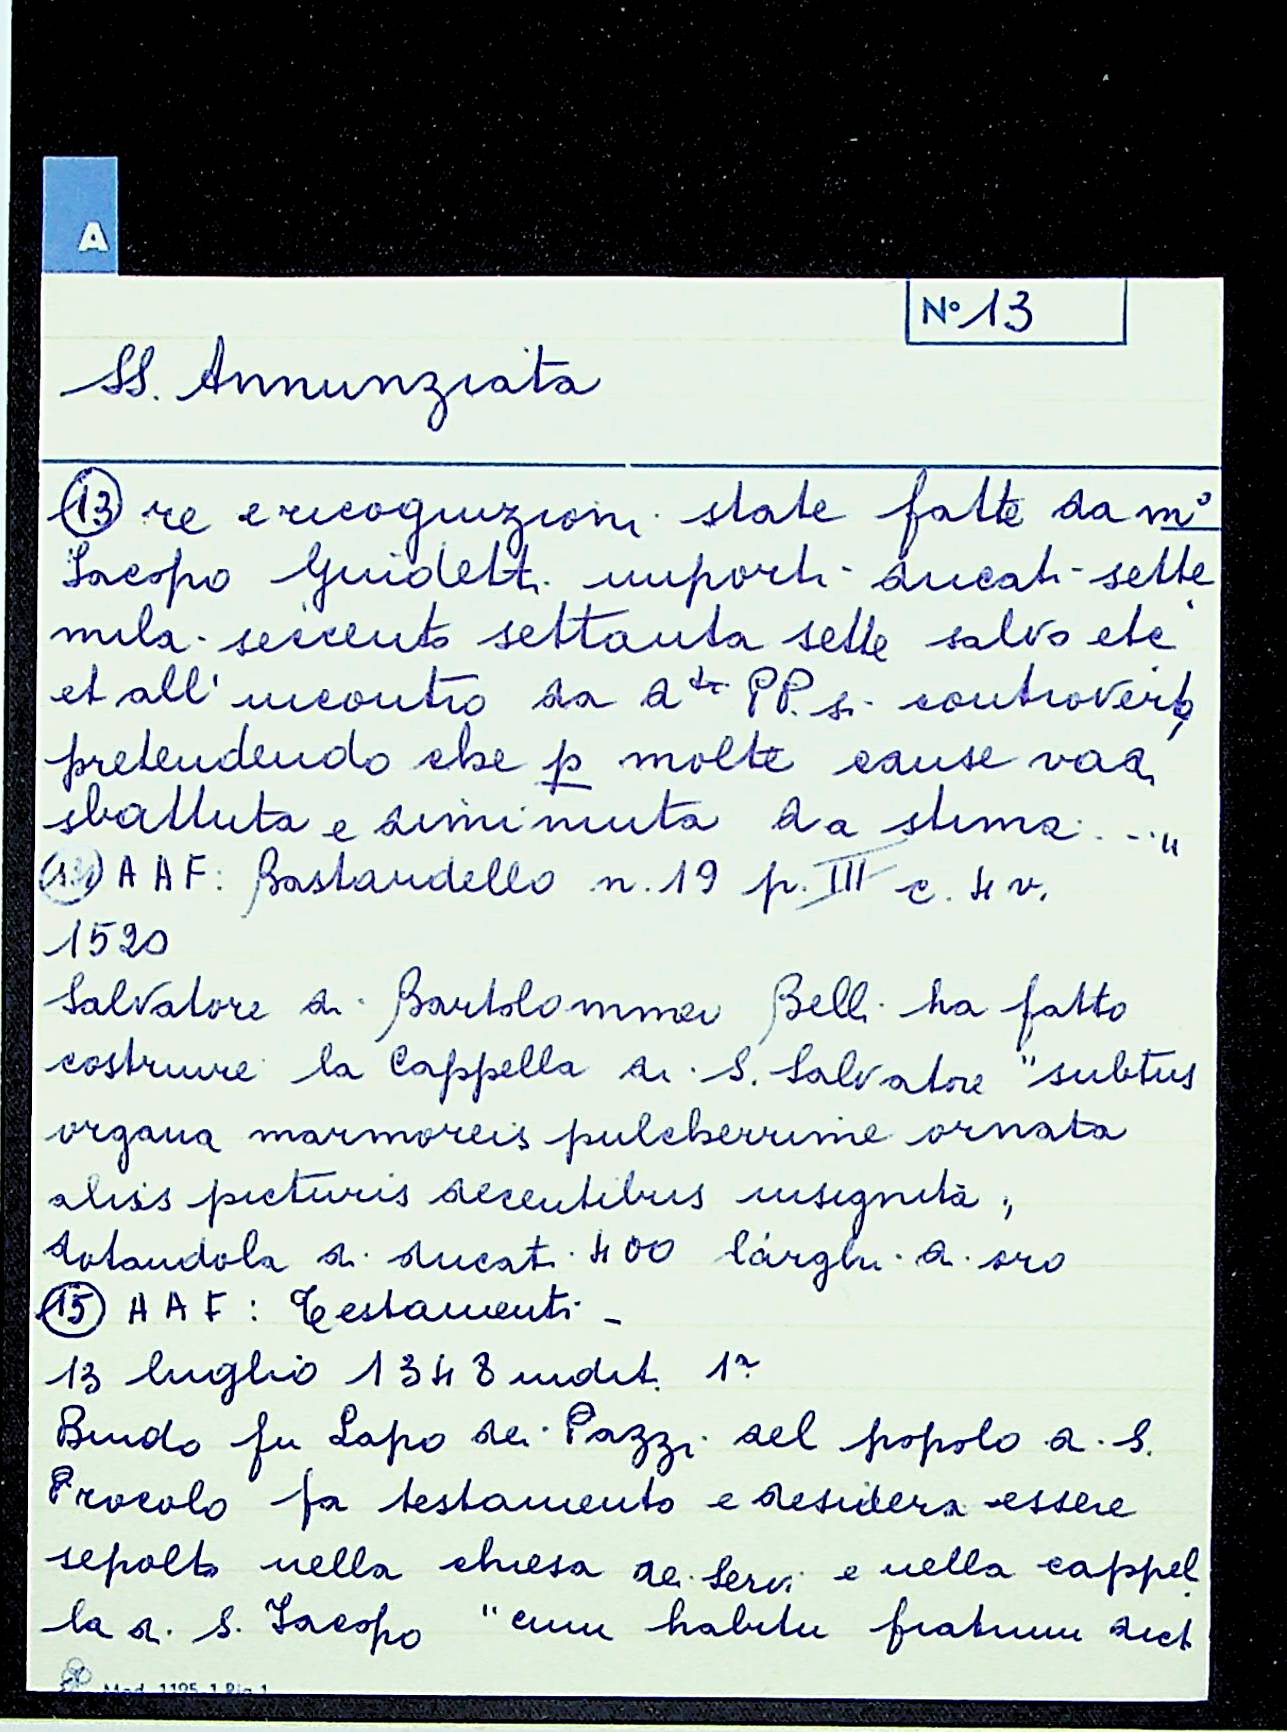 A
N° 13
SS. Annunziata
(13) re e ricognizioni state fatte da m°
Jacopo Guidetti importi ducati sette
mila seicento settanta sette salvo etc
et all'incontro da dtti PP. si controverte,
pretendendo che p molte cause vada
sbattuta e diminuita da stima...."
AAF: Bastardello n. 19 p. III c. 4 v.
1520
Salvatore di Bartolommeo Belli ha fatto
costruire la Cappella di S. Salvatore "subtus
organa marmoreis pulcherrime ornata
aliis picturis decentibus insignita,
dotandola di ducati 400 larghi di oro
(15) AAF: Testamenti -
13 luglio 1348 indit. 1ª
Bindo fu Lapo dei Pazzi del popolo di S.
Procolo fa testamento e desidera essere
sepolto nella chiesa dei Servi e nella cappel
la di S. Jacopo "cum habitu fratrum dict
Mod. 1195-1 Rig 1